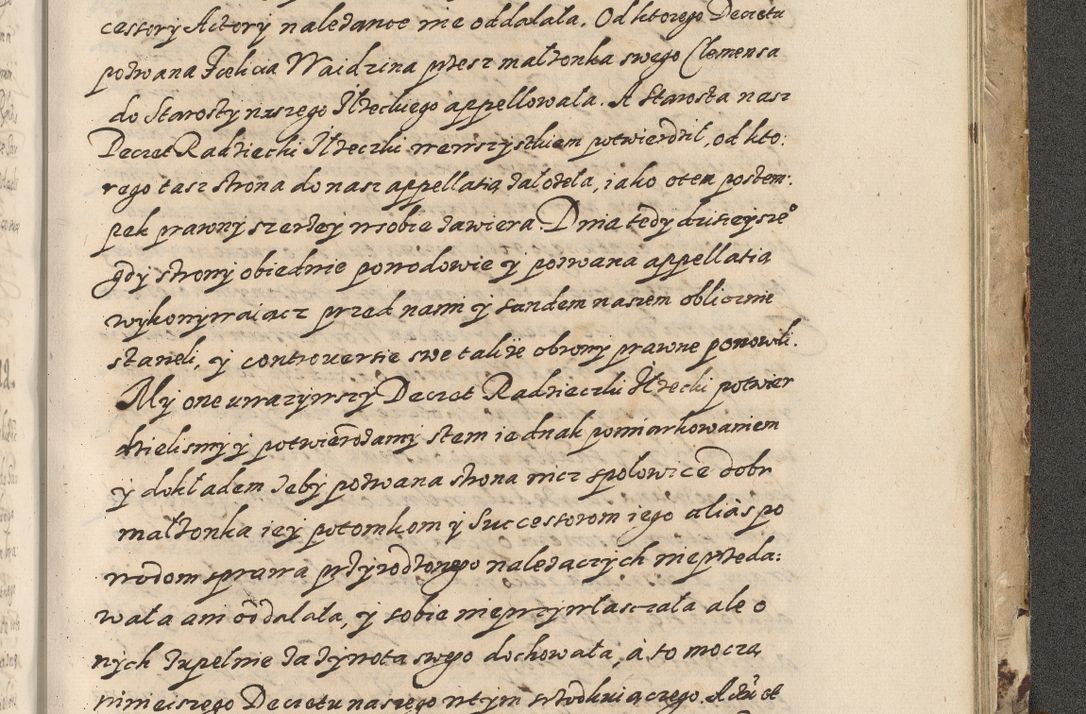 cessory Actory należance nie oddalała. Od ktorego Decretu
pozwana Felicia Waidzina przesz małżonka swego Clemensa
do Starosty naszego Iłżeckiego appellowala. A Starosta nasz
Decret Radziecki Iłżeczki wewszyszkiem potwierdził, od kto:
rego tasz strona do nasz appellatią założeła, iako oten postem:
pek prawny szerzey wsobie zawiera. Dnia tedy dzisieyszeº
gdy strony obiednie powodowie y pozwana appellatią
wykonywaiącz przed nami y sandem naszem oblicznie
staneli, y controversie swe takiże obrony prawne ponowili.
My one uwazywszy Decret Radzieczki Iłżecki potwier
dzielismy y potwierdzamy stem iednak pomiarkowaniem
y dokładem żeby pozwana strona nicz społowice dobr
małżonka iey potomkom y Successorom iego alias po
wodom sprawa przyrodzonego należaczych nieprzeda:
wała ani oddalała, y sobie nieprzywłasczała ale o
nych zupełnie za żywota swego dochowała, a to moczą
ninieiszego Decretu naszego wtym wkłodkuiączego. Actu et